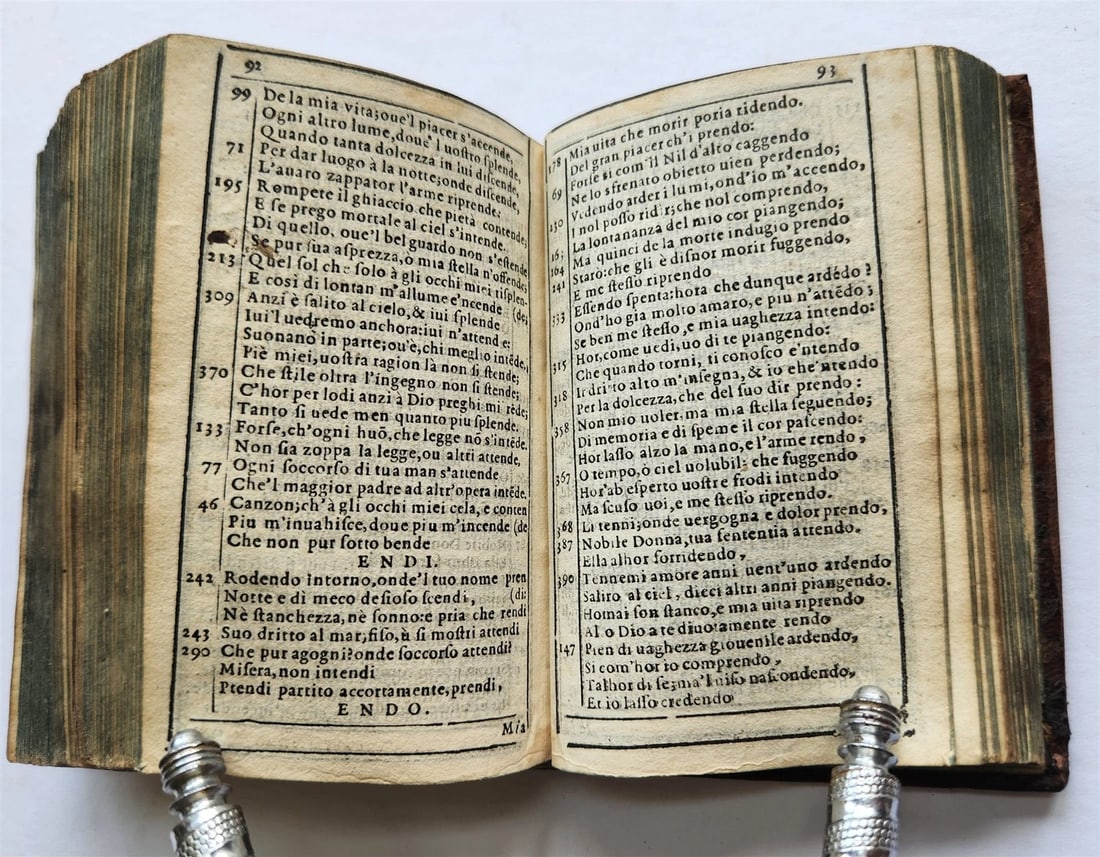 92
99 De la mia vita;oue'l piacer s'accende,
Ogni altro lume,doue' l uoſtro ſplende,
Quando tanta dolcezza in lui diſcende,
71 Per dar luogo à la notte;onde diſcende,
L'auaro zappator l'arme riprende:
195 Rompete il ghiaccio che pietà contende;
E ſe prego mortale al ciel s'intende.
Di quello, oue'l bel guardo non s'eſtende
Se pur ſua aſprezza,ò mia ſtella n'offende;
213 Quel ſol che ſolo à gli occhi miei riſplen-
E coſi di lontan m'allume e'ncende (de;
309 Anzi è ſalito al cielo,& iui ſplende
Iui'l uedremo anchora:iui n'attende:
Suonano in parte;ou'è,chi meglio intēde,
Piè miei,uoſtra ragion là non ſi ſtende;
370 Che ſtile oltra l'ingegno non ſi ſtende;
C'hor per lodi anzi à Dio preghi mi rēde;
Tanto ſi uede men quanto piu ſplende.
133 Forſe,ch'ogni huō,che legge nō s'intēde.
Non ſia zoppa la legge,ou altri attende,
77 Ogni ſoccorſo di tua man s'attende
Che'l maggior padre ad altr'opera intēde.
46 Canzon;ch'à gli occhi miei cela, e conten
Piu m'inuahiſce,doue piu m'incende (de
Che non pur ſotto bende
E N D I.
242 Rodendo intorno,onde'l tuo nome pren
Notte e di meco deſioſo ſcendi, (di:
Nè ſtanchezza,nè ſonno:e pria che rendi
243 Suo dritto al mar,fiſo,ù ſi moſtri attendi
290 Che pur agogni?onde ſoccorſo attendi?
Miſera,non intendi
Prendi partito accortamente,prendi,
E N D O.
Mia
93
Mia uita che morir poria ridendo.
178 Del gran piacer ch'i prendo:
Forſe ſi com'il Nil d'alto caggendo
69 Ne lo sfrenato obietto uien perdendo;
Vedendo arder i lumi,ond'io m'accendo,
130 I nol poſſo ridir;che nol comprendo,
La lontananza del mio cor piangendo;
Ma quinci de la morte indugio prendo
164 Starò:che gli è diſnor morir fuggendo,
241 E me ſteſſo riprendo
Eſſendo ſpenta:hora che dunque ardēdo ?
333 Ond'ho gia molto amaro,e piu n'attēdo ;
Se ben me ſteſſo ,e mia uaghezza intendo:
Hor,come uedi,uo di te piangendo:
315 Che quando torni, ti conoſco e'ntendo
Ir dritto alto m'inſegna, & io che'ntendo
318 Per la dolcezza,che del ſuo dir prendo :
Non mio uoler,ma mia ſtella ſeguendo;
358 Di memoria e di ſpeme il cor paſcendo:
Hor laſſo alzo la mano,e l'arme rendo ,
367 O tempo,ò ciel uolubil; che fuggendo
Hor'ab eſperto uoſtre frodi intendo
Ma ſcuſo uoi,e me ſteſſo riprendo.
368 Li tenni;onde uergogna e dolor prendo,
387 Nobile Donna,tua ſententia attendo.
Ella alhor ſorridendo ,
390 Tennemi amore anni uent'uno ardendo
Saliro al ciel , dieci altri anni piangendo.
Homai ſon ſtanco,e mia uita riprendo
Al o Dio a te diuotamente rendo
147 Pien di uaghezza giouenile ardendo,
Si com'hor io comprendo ,
Talhor di ſe;ma'l uiſo naſcondendo,
Et io laſſo credendo